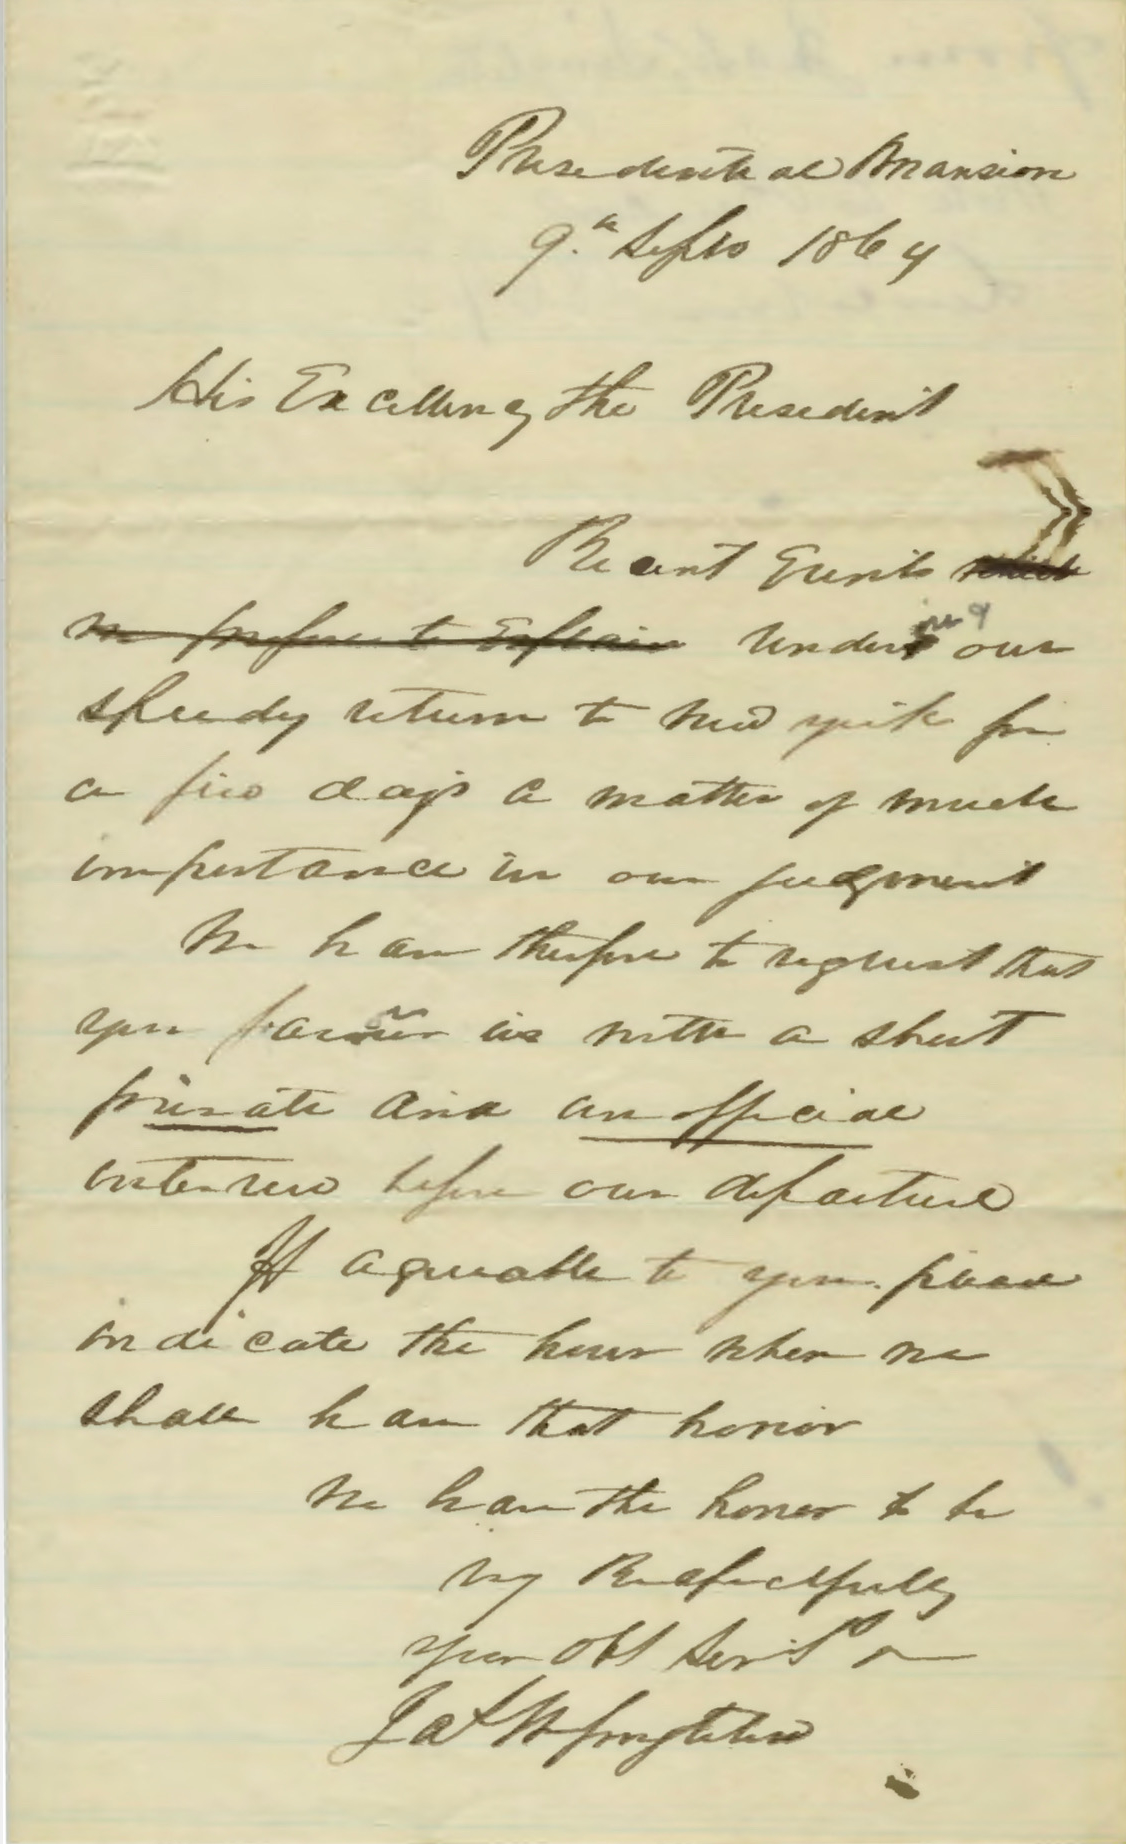 Presidential Mansion
9.th Septo 1864
His Excellency the President
Recent Events which
we propose to Explain render our
speedy return to New York for
a few days a matter of much
importance in our judgment
We have therefore to request that
you favour us with a short
private and an official
interview before our departure
If agreeable to you please
indicate the hour when we
shall have that honor
We have the honor to be
very Respectfully
your Obt Servts
J a W Singleton